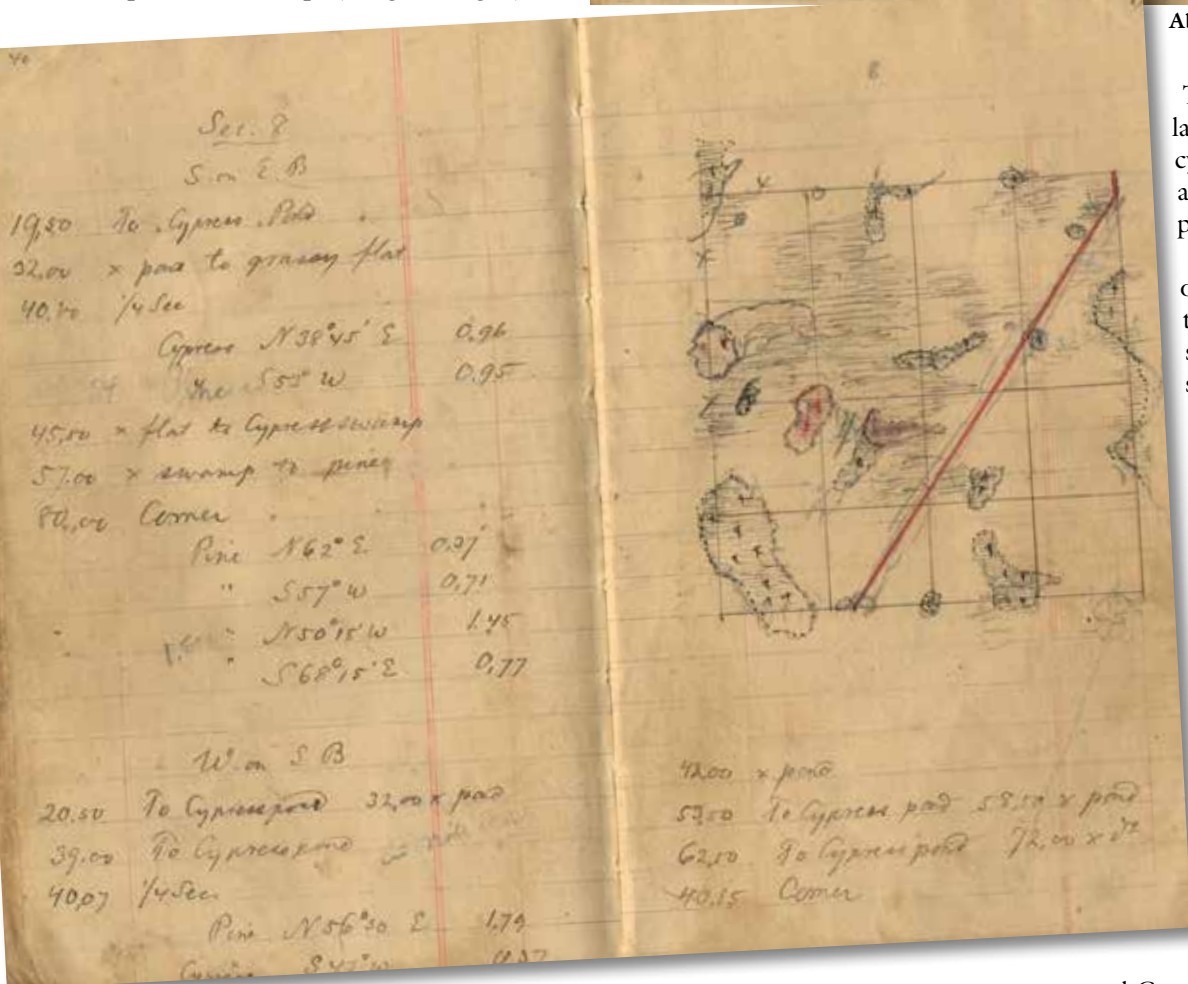 40
Sec. 8
S. on E. B
19,50 To Cypress Pond
32,00 x pond to grassy flat
40,00 1/4 Sec
Cypress N 38°45' E 0.96
Pine S 55° W 0.95
45,50 x flat to Cypress swamp
57.00 x swamp to pines
80,00 Corner
Pine N 62° E. 0,37
" S 57° W 0,71
" N 50°15' W 1.45
" S 68°15' E 0,77
W. on S B
20.50 To Cypress pond 32,00 x pond
39.00 To Cypress pond
40,07 1/4 Sec
Pine N 56°30 E 1,79
Cypress S 47° W
8
42,00 x pond
53,50 To Cypress pond 58,50 x pond
62,50 To Cypress pond 72,00 x do
Corner